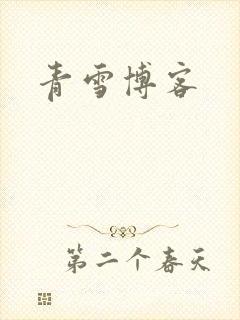 青雪博客
第二个春天